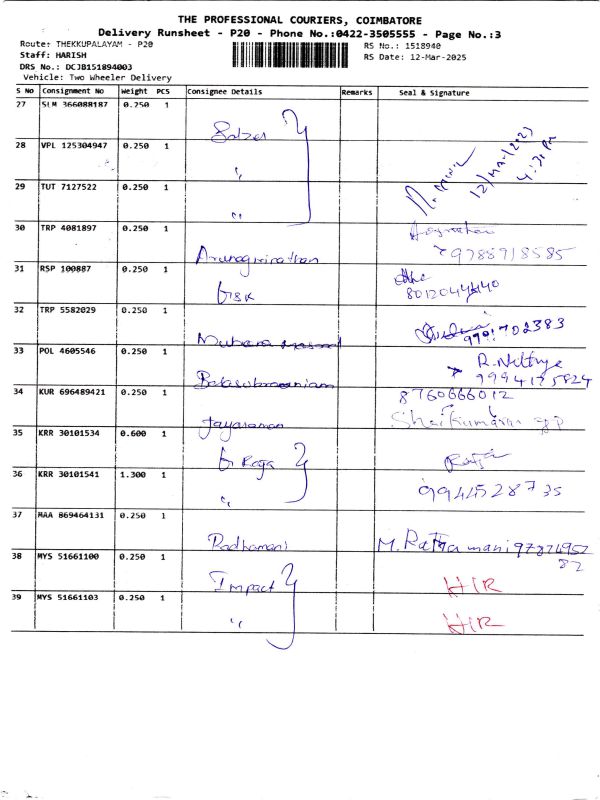 THE PROFESSIONAL COURIERS, COIMBATORE
Delivery Runsheet - P20 - Phone No.:0422-3505555 - Page No.:3
Route: THEKKUPALAYAM - P20 RS No.: 1518940
Staff: HARISH RS Date: 12-Mar-2025
DRS No.: DCJB151894003
Vehicle: Two Wheeler Delivery
S No Consignment No Weight PCS Consignee Details Remarks Seal & Signature
27 SLM 366088187 0.250 1
28 VPL 125304947 0.250 1 "
4:30 Pm
29 TUT 7127522 0.250 1 "
30 TRP 4081897 0.250 1 9788918585
31 RSP 100887 0.250 1
32 TRP 5582029 0.250 1
33 POL 4605546 0.250 1 Balasubramaniam R. Nithya
34 KUR 696489421 0.250 1 Jayaraman 8760666012
35 KRR 30101534 0.600 1 Raja Raja
36 KRR 30101541 1.300 1 " 9944528735
37 MAA 869464131 0.250 1 Radhamani M.
38 MYS 51661100 0.250 1 Impact HIR
39 MYS 51661103 0.250 1 " HIR